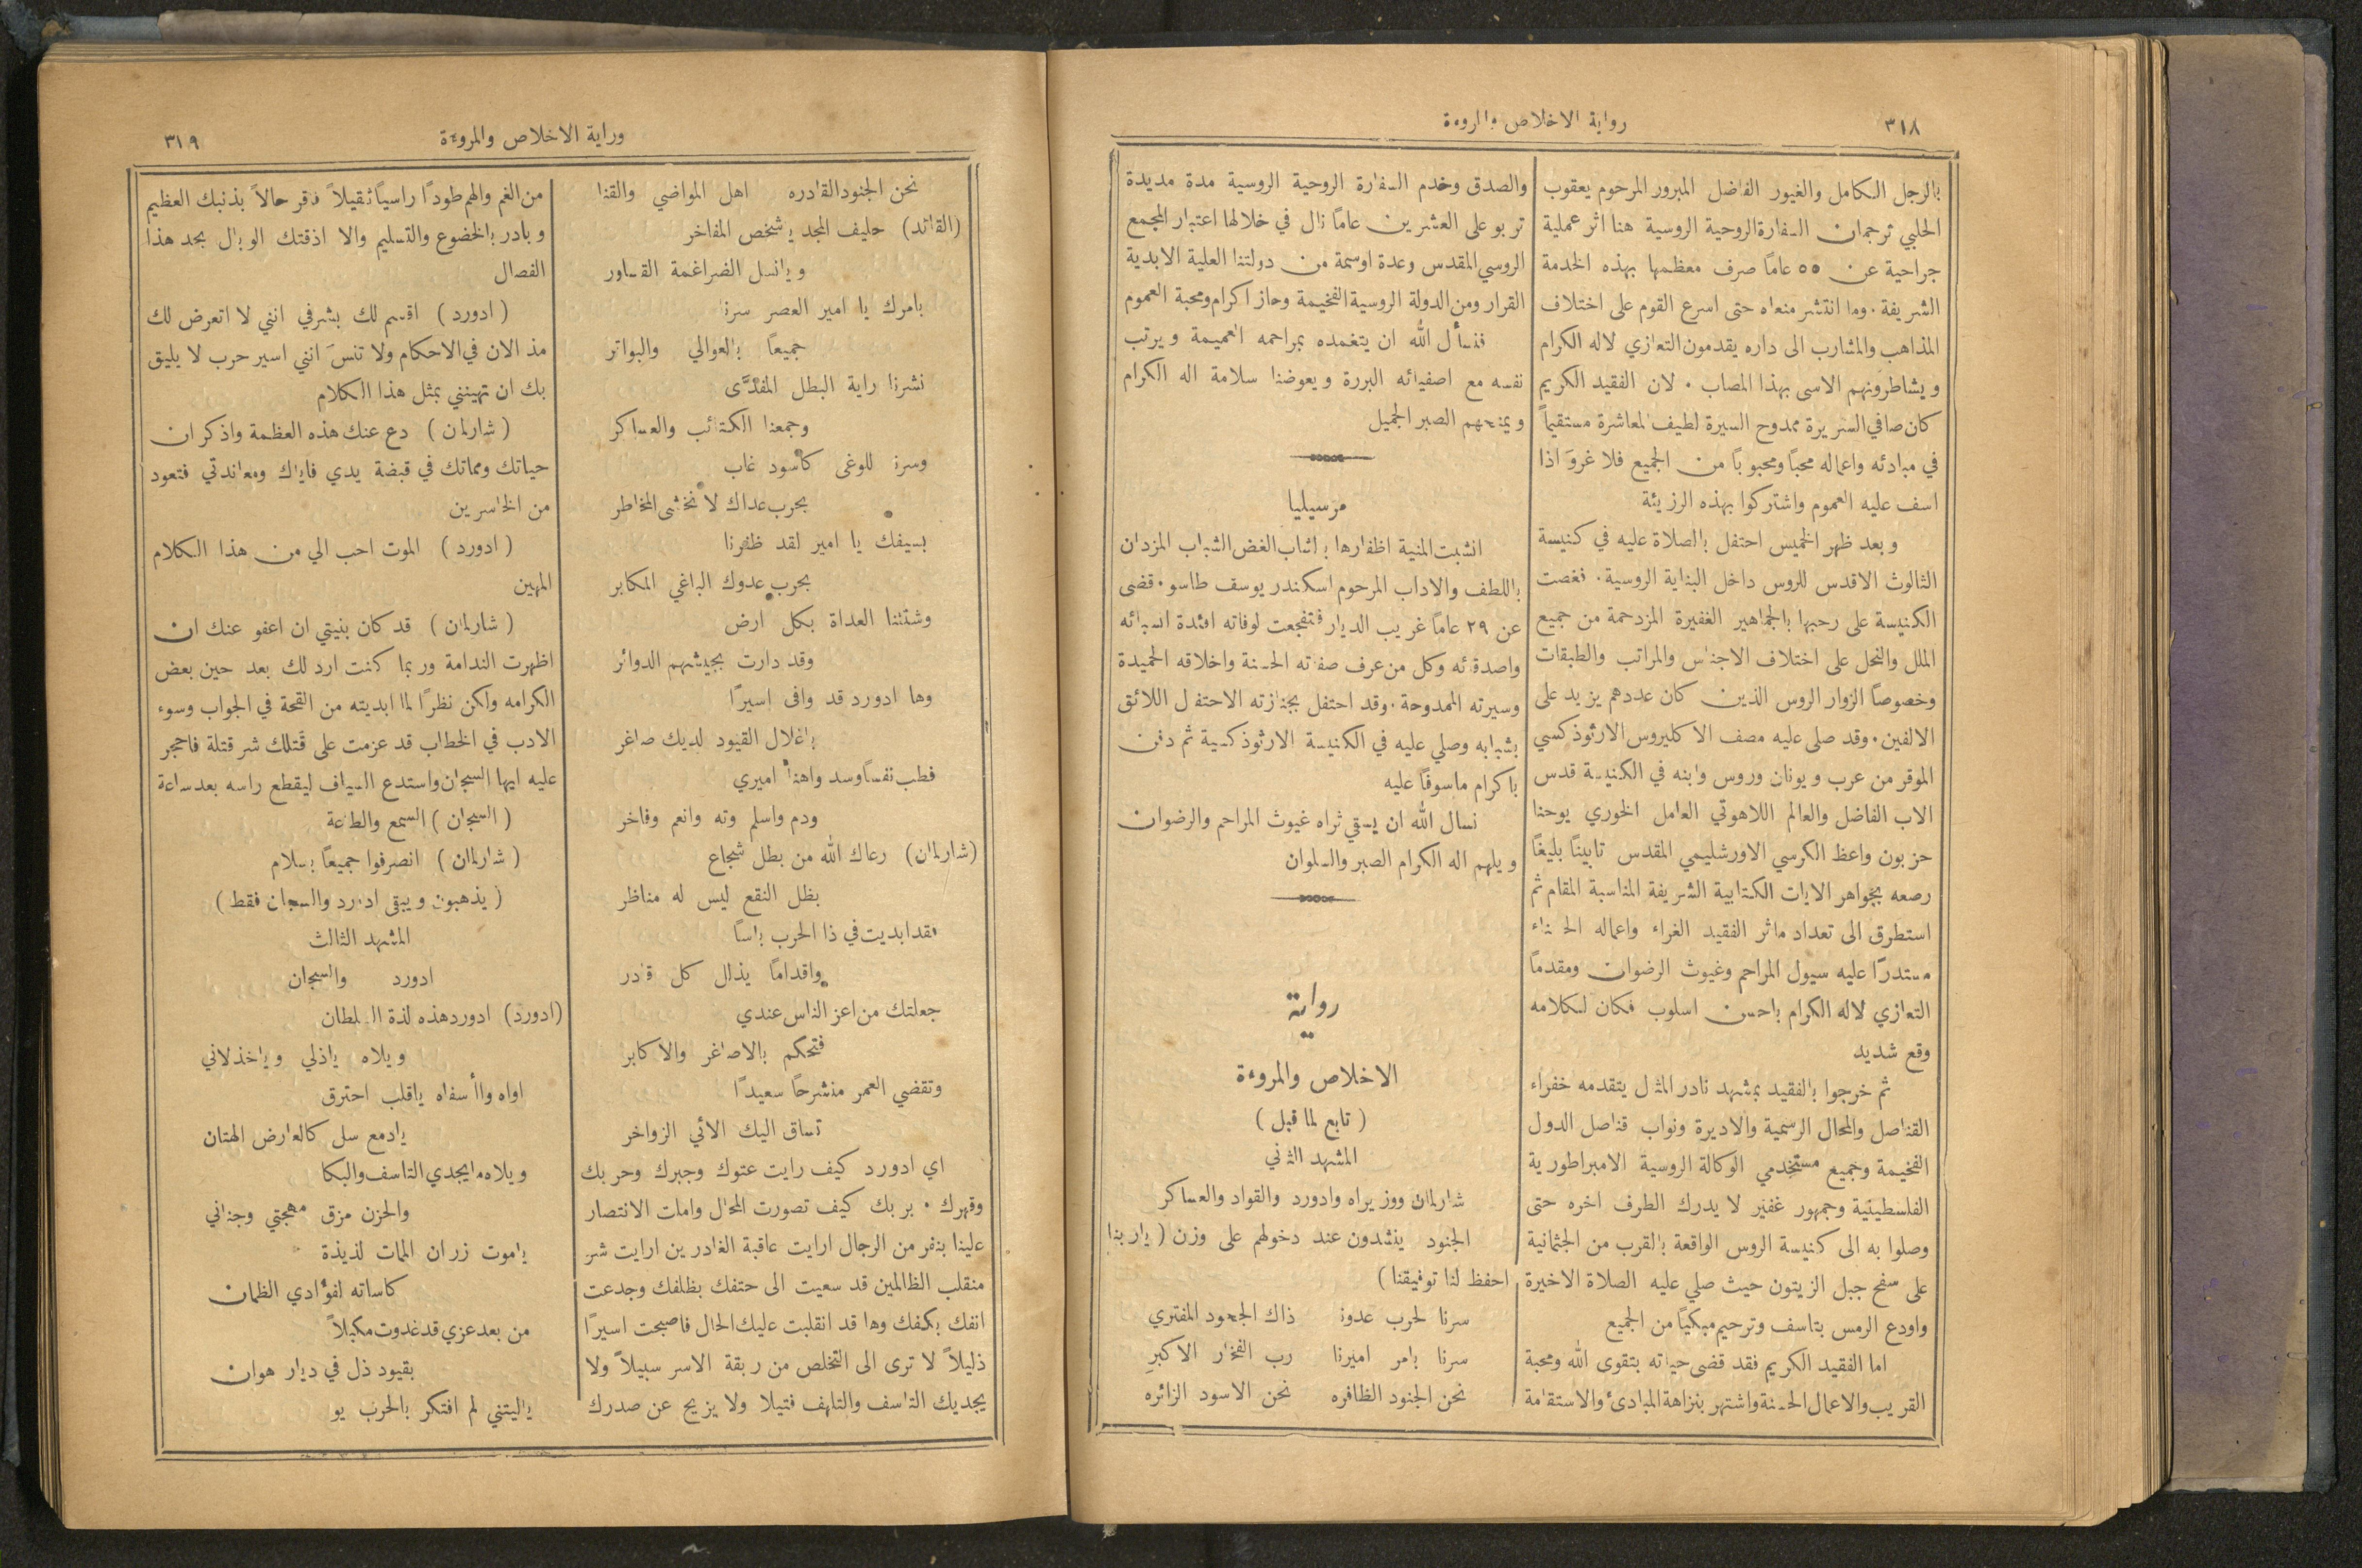 ٣١٨
رواية الاخلاص والمروءة
بالرجل الكامل والغيور الفاضل المبرور المرحوم يعقوب
الحلبي ترجمان السفارة الروحية الروسية هنا اثر عملية
جراحية عن ٥٥ عاماً صرف معظمها بهذه الخدمة
الشريفة . وما انتشر منعاه حتى اسرع القوم على اختلاف
المذاهب والمشارب الى داره يقدمون التعازي لاله الكرام
ويشاطرونهم الاسى بهذا المصاب . لان الفقيد الكريم
كان صافي السريرة ممدوح السيرة لطيف المعاشرة مستقيماً
في مبادئه واعماله محباً ومحبوباً من الجميع فلا غروَ اذا
اسف عليه العموم واشتركوا بهذه الرزيئة
وبعد ظهر الخميس احتفل بالصلاة عليه في كنيسة
الثالوث الاقدس للروس داخل البناية الروسية . فغصت
الكنيسة على رحبها بالجماهير الغفيرة المزدحمة من جميع
الملل والنحل على اختلاف الاجناس والمراتب والطبقات
وخصوصاً الزوار الروس الذين كان عددهم يزيد على
الالفين . وقد صلى عليه مصف الاكليروس الارثوذكسي
الموقر من عرب ويونان وروس وابنه في الكنيسة قدس
الاب الفاضل والعالم اللاهوتي العامل الخوري يوحنا
حزبون واعظ الكرسي الاورشليمي المقدس تابيناً بليغاً
رصعه بجواهر الايات الكتابية الشريفة المناسبة المقام ثم
استطرق الى تعداد ماثر الفقيد الغراء واعماله الحسناء
مستدرّا عليه سيول المراحم وغيوث الرضوان ومقدماً
التعازي لاله الكرام باحسن اسلوب فكان لكلامه
وقع شديد
ثم خرجوا بالفقيد بمشهد نادر المثال يتقدمه خفراء
القناصل والمحال الرسمية والاديرة ونواب قناصل الدول
الفخيمة وجميع مستخدمي الوكالة الروسية الامبراطورية
الفلسطينية وجمهور غفير لا يدرك الطرف اخره حتى
وصلوا به الى كنيسة الروس الواقعة بالقرب من الجثمانية
على سفح جبل الزيتون حيث صلي عليه الصلاة الاخيرة
واودع الرمس بتاسف وترحيم مبكياً من الجميع
اما الفقيد الكريم فقد قضى حياته بتقوى الله ومحبة
القريب والاعمال الحسنة واشتهر بنزاهة المبادئ والاستقامة
والصدق وخدم السفارة الروحية الروسية مدة مديدة
تربو على العشرين عاماً نال في خلالها اعتبار المجمع
الروسي المقدس وعدة اوسمة من دولتنا العلية الابدية
القرار ومن الدولة الروسية الفخيمة وحاز اكرام ومحبة العموم
فنسأل الله ان يتغمده بمراحمه العميمة ويرتب
نفسه مع اصفيائه البررة ويعوضنا سلامة اله الكرام
ويمنحهم الصبر الجميل
مرسيليا
انشبت المنية اظفارها بالشاب الغض الشباب المزدان
باللطف والاداب المرحوم اسكندر يوسف طاسو . قضى
عن ٢٩ عاماً غريب الديار فتفجعت لوفاته افئدة انسبائه
واصدقائه وكل من عرف صفاته الحسنة واخلاقه الحميدة
وسيرته الممدوحة . وقد احتفل بجنازته الاحتفال اللائق
بشبابه وصلي عليه في الكنيسة الارثوذكسية ثم دفن
باكرام ماسوفاً عليه
نسال الله ان يسقي ثراه غيوث المراحم والرضوان
ويلهم اله الكرام الصبر والسلوان
رواية
الاخلاص والمروءة
( تابع لما قبل )
المشهد الثاني
شارلمان ووزيراه وادورد والقواد والعساكر
الجنود ينشدون عند دخولهم على وزن ( ياربنا
احفظ لنا توفيقنا )
سرنا لحرب عدونا ذاك الجحود المفتري
سرنا بامر اميرنا رب الفخار الاكبرِ
نحن الجنود الظافره نحن الاسود الزائره
وراية الاخلاص والمروءة
٣١٩
نحن الجنود القادره اهل المواضي والقنا
(القائد) حليف المجد يا شخص المفاخر
ويانسل الضراغمة القساور
بامرك يا امير العصر سرنا
جميعاً بالعوالي والبواتر
نشرنا راية البطل المفدَّى
وجمعنا الكتائب والعساكر
وسرنا للوغى كاسود غاب
بحرب عداك لا نخشى المخاطر
بسيفك يا امير لقد ظفرنا
بحرب عدوك الباغي المكابر
وشتتنا العداة بكل ارض
وقد دارت بجيشهم الدوائر
وها ادورد قد وافى اسيرًا
باغلال القيود لديك صاغر
فطب نفساً وسد واهنا اميري
ودم واسلم وته وانعم وفاخر
(شارلمان) رعاك الله من بطل شجاع
بظل النقع ليس له مناظر
فقد ابديت في ذا الحرب باساً
واقداماً يذلل كل قادر
جعلتك من اعز الناس عندي
فتحكم بالاصاغر والاكابر
وتقضي العمر منشرحاً سعيدًا
تساق اليك الائي الزواخر
اي ادورد كيف رايت عتوك وجبرك وحربك
وقهرك . بربك كيف تصورت المحال واملت الانتصار
علينا بنفر من الرجال ارايت عاقبة الغادرين ارايت شر
منقلب الظالمين قد سعيت الى حتفك بظلفك وجدعت
انفك بكفك وها قد انقلبت عليك الحال فاصبحت اسيرًا
ذليلاً لا ترى الى التخلص من ربقة الاسر سبيلاً ولا
يجديك التاسف والتلهف فتيلا ولا يزيح عن صدرك
من الغم والهم طودًا راسياً ثقيلاً فاقر حالاً بذنبك العظيم
وبادر بالخضوع والتسليم والا اذقتك الوبال بحد هذا
الفصال
( ادورد ) اقسم لك بشرفي انني لا اتعرض لك
مذ الان في الاحكام ولا تنسَ انني اسير حرب لا يليق
بك ان تهينني بمثل هذا الكلام
( شارلمان ) دع عنك هذه العظمة واذكر ان
حياتك ومماتك في قبضة يدي فاياك ومعاندتي فتعود
من الخاسرين
( ادورد ) الموت احب الي من هذا الكلام
المهين
( شارلمان ) قد كان بنيتي ان اعفو عنك ان
اظهرت الندامة وربما كنت ارد لك بعد حين بعض
الكرامه ولكن نظرًا لما ابديته من القحة في الجواب وسوء
الادب في الخطاب قد عزمت على قتلك شر قتلة فاحجر
عليه ايها السجان واستدع السياف ليقطع راسه بعد ساعة
( السجان ) السمع والطاعة
( شارلمان ) انصرفوا جميعاً بسلام
( يذهبون ويبقى ادورد والسجان فقط )
المشهد الثالث
ادورد والسجان
(ادورد) ادورد هذه لذة السلطان
ويلاه ياذلي وياخذلاني
اواه واأسفاه ياقلب احترق
يادمع سل كالعارض الهتان
ويلاه مايجدي التاسف والبكا
والحزن مزق مهجتي وجناني
ياموت زر ان الممات لذيذة
كاساته لفؤادي الظمان
من بعد عزي قد غدوت مكبلاً
بقيود ذل في ديار هوان
ياليتني لم افتكر بالحرب يو